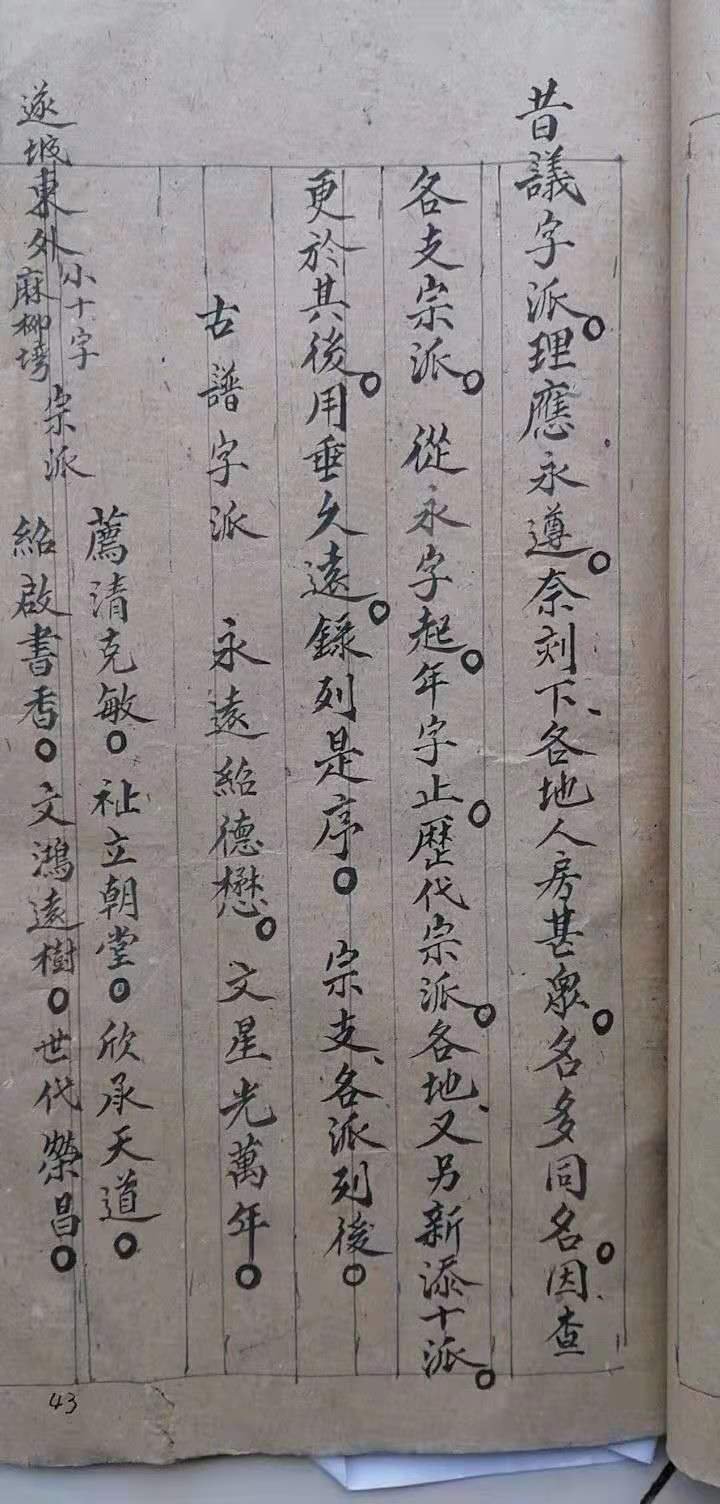 昔議字派。理應永遵。奈刻下、各地人房甚衆。名多同名。因、查
各支宗派。從永字起。年字止。歷代宗派。各地、又另新添十派。
更於其後。用垂久遠。錄列是序。宗支、各派列後。
古譜字派 永遠紹德懋。文星光萬年。
遂坂東外小十字麻柳塆宗派
薦清克敏。祉立朝堂。欣承天道。
紹啟書香。文鴻遠樹。世代榮昌。
43